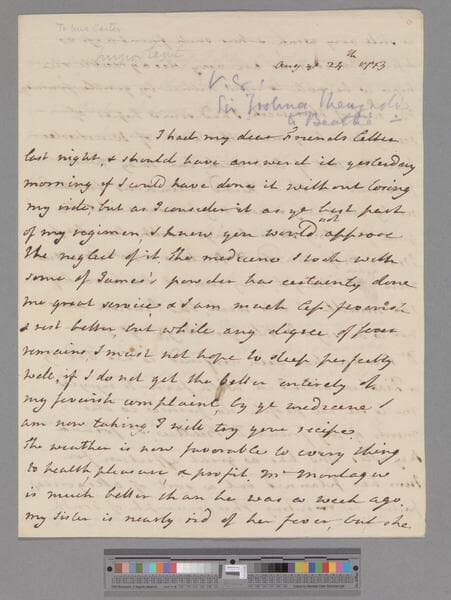 To Mrs Carter
Augst ye 24th 1773
V. &
Sir Joshua Reynolds
to Beattie
I had my dear Friends letter
last night, & should have answered it yesterday
morning if I could have done it without losing
my ride, but as I consider it as ye best part
of my regimen, I knew you would not approve
the neglect of it, the medicine I took with
some of James's powder has certainly done
me great service, & I am much less feverish
& rest better, but while any degree of fever
remains, I must not hope to sleep perfectly
well, if I do not get the better entirely of
my feverish complaint, by ye medecine
am now taking, I will try your recipe.
The weather is now favorable to every thing
to health, pleasure & profit. Mr Montagu
is much better than he was a week ago.
my sister is nearly rid of her fever, but she